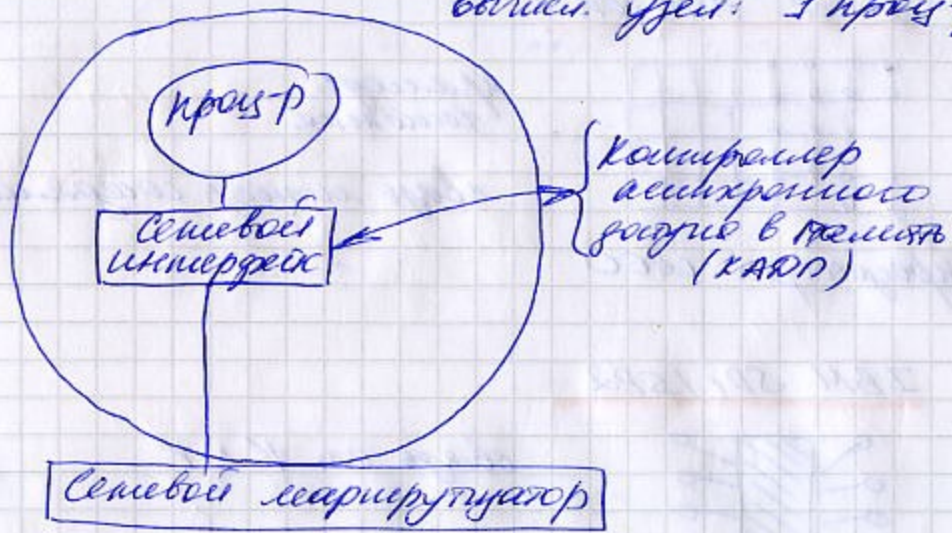 вычисл. узел: 1 проц
проц-р
сетевой
интерфейс
Контроллер
асинхронного
доступа в память
(КАДП)
Сетевой маршрутизатор